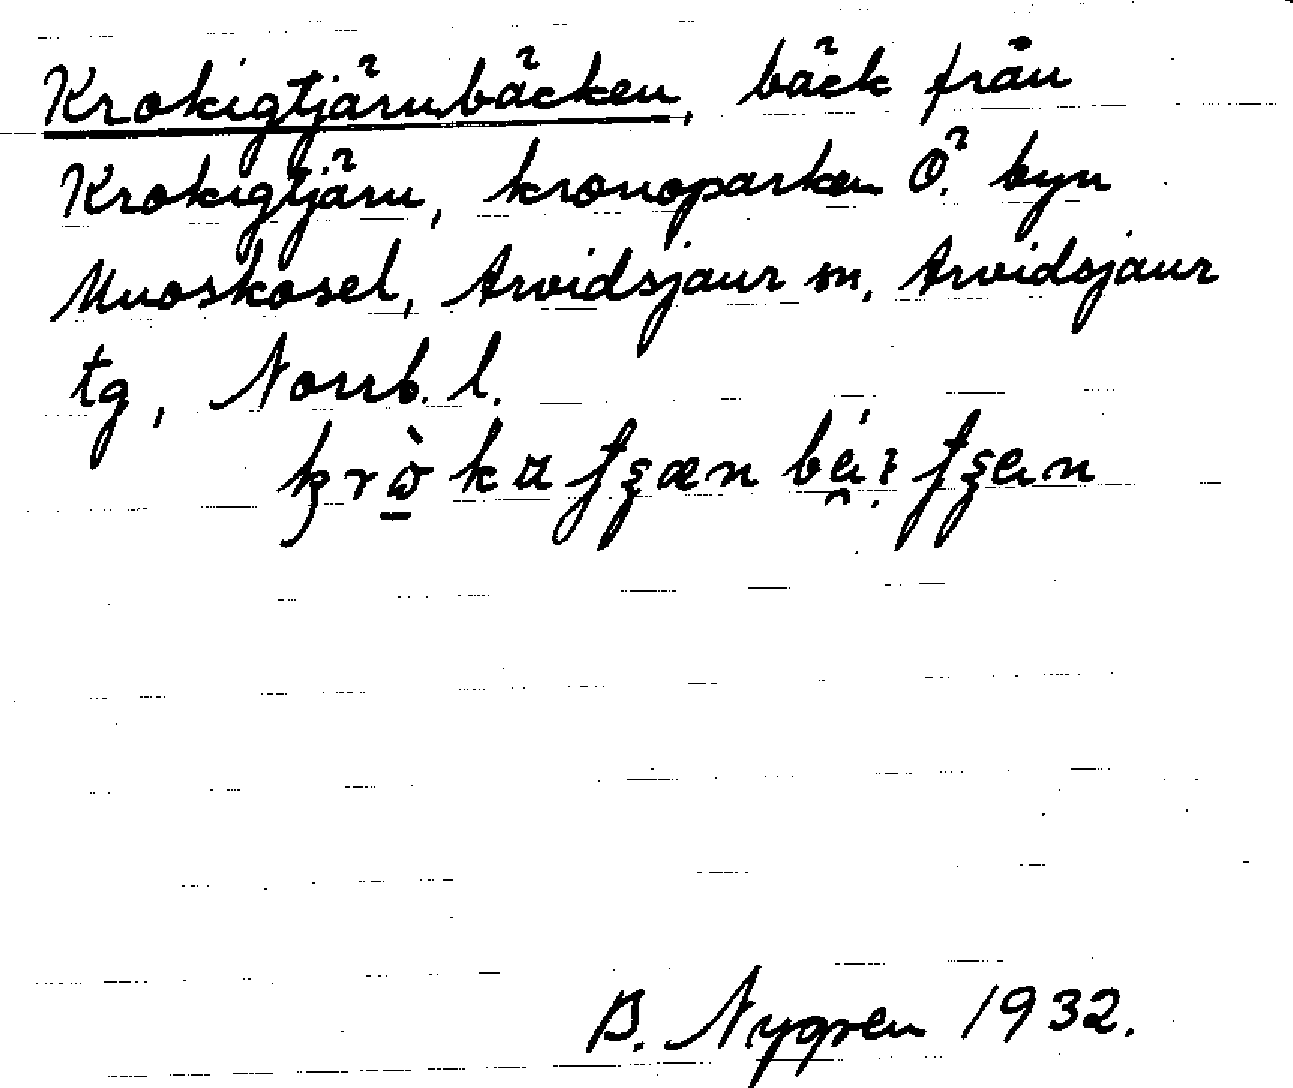 Krokigtjärnbäcken, bäck från
Krokigtjärn, kronoparken Ö. byn
Muoskosel, Arvidsjaur sn, Arvidsjaur
tg, Norrb. l.
B. Nygren 1932.